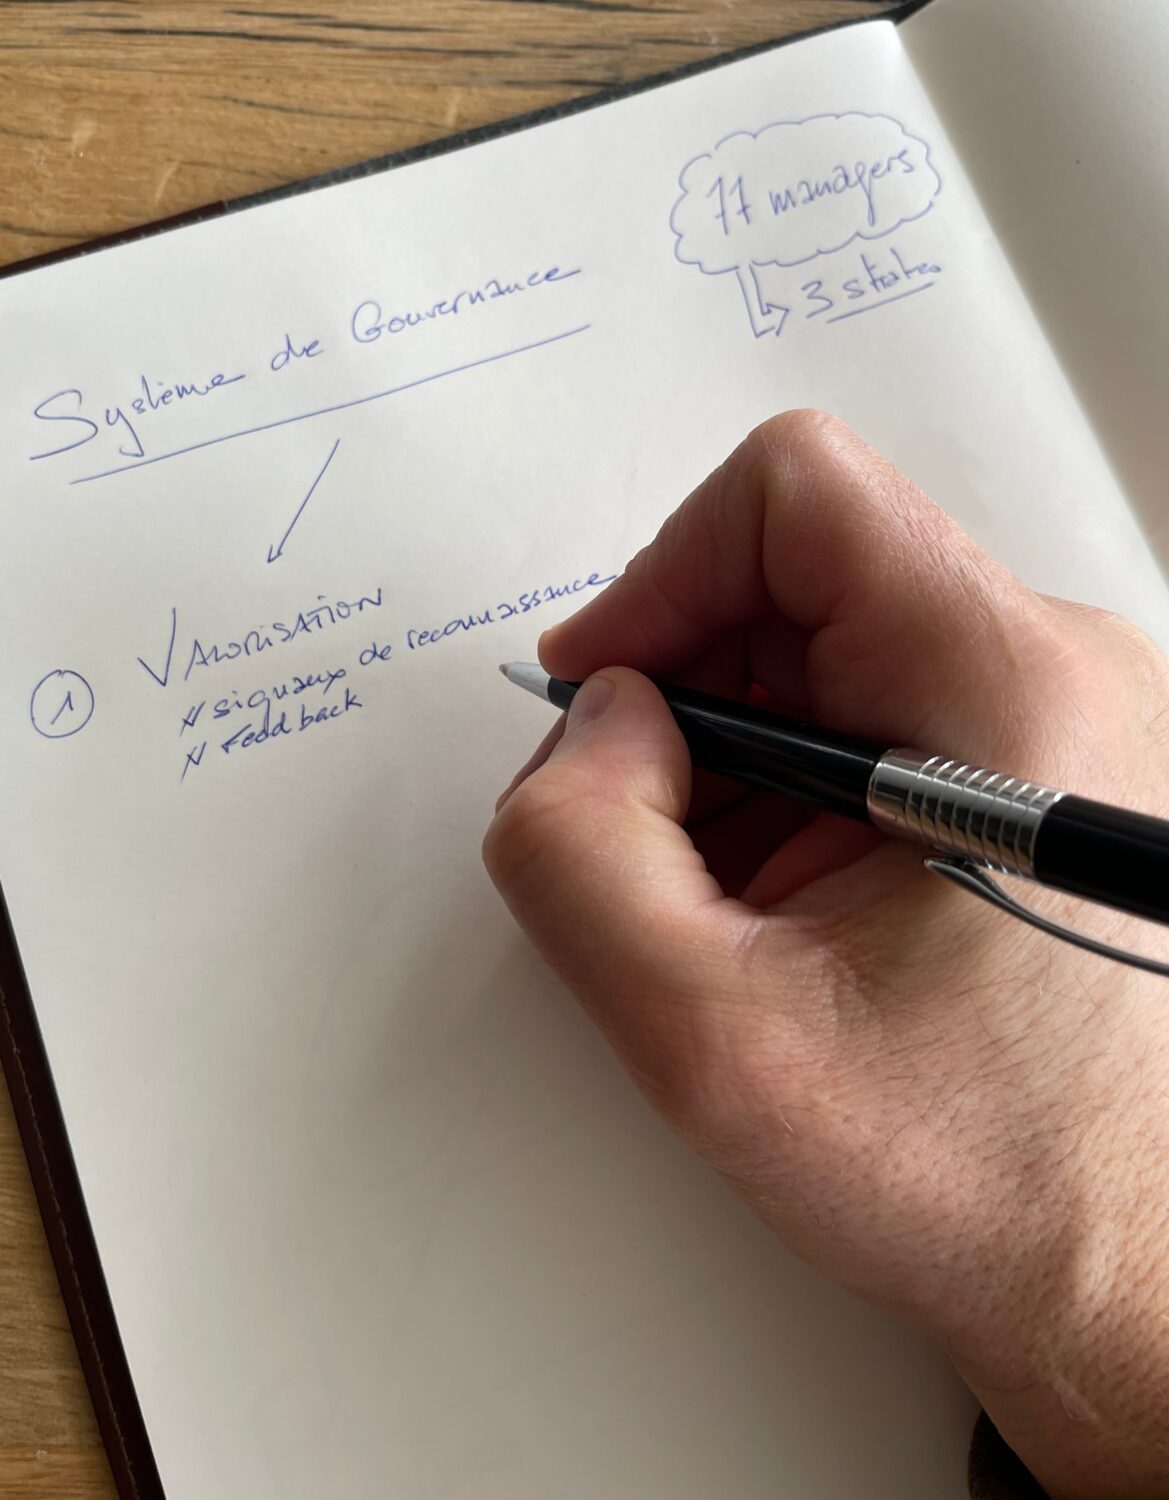 77 managers
3 strates
Système de Gouvernance
1
VALORISATION
// signaux de reconnaissance
// Feedback